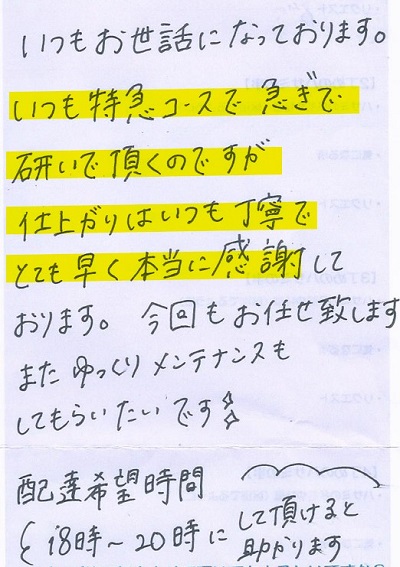 いつもお世話になっております。
いつも特急コースで急ぎで
研いで頂くのですが
仕上がりはいつも丁寧で
とても早く本当に感謝して
おります。今回もお任せ致します
またゆっくりメンテナンスも
してもらいたいです
配達希望時間
18時〜20時に
して頂けると
助かります